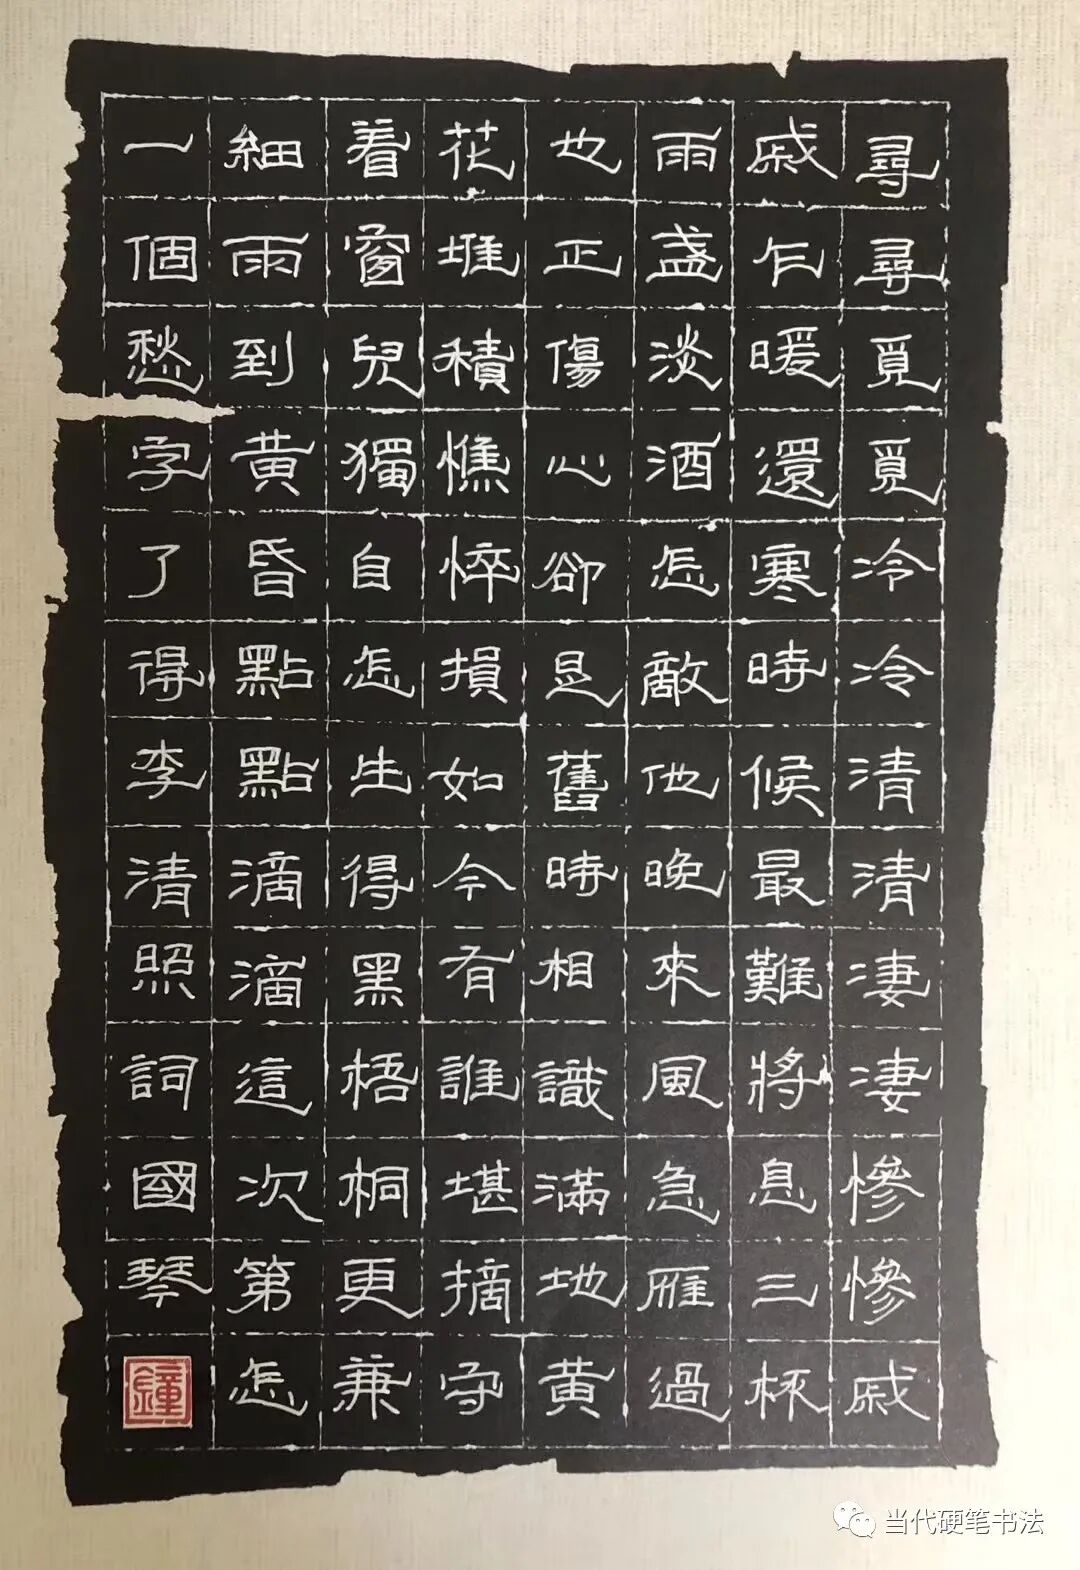 尋尋覓覓冷冷清清凄凄慘慘戚
戚乍暖還寒時候最難將息三杯
兩盞淡酒怎敵他晚來風急雁過
也正傷心卻是舊時相識滿地黄
花堆積憔悴損如今有誰堪摘守
着窗兒獨自怎生得黑梧桐更兼
細雨到黄昏點點滴滴這次第怎
一個愁字了得李清照詞國琴
鐘
当代硬笔书法